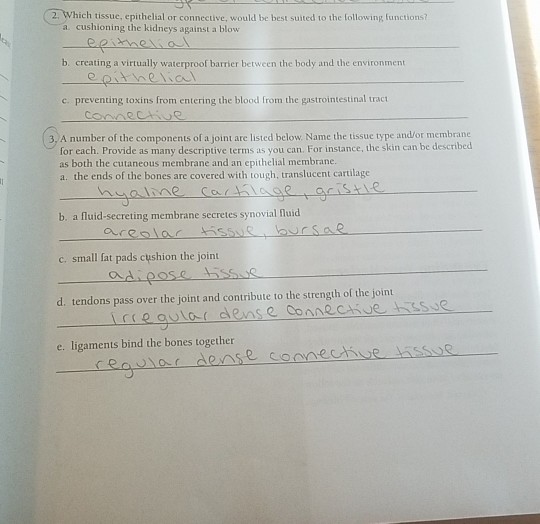 2. Which tissue, epithelial or connective, would be best suited to the following functions?
a. cushioning the kidneys against a blow
epithelial
b. creating a virtually waterproof barrier between the body and the environment
epithelial
c. preventing toxins from entering the blood from the gastrointestinal tract
connective
3. A number of the components of a joint are listed below. Name the tissue type and/or membrane
for each. Provide as many descriptive terms as you can. For instance, the skin can be described
as both the cutaneous membrane and an epithelial membrane.
a. the ends of the bones are covered with tough, translucent cartilage
hyaline cartilage, gristle
b. a fluid-secreting membrane secretes synovial fluid
areolar tissue, bursae
c. small fat pads cushion the joint
adipose tissue
d. tendons pass over the joint and contribute to the strength of the joint
irregular dense connective tissue
e. ligaments bind the bones together
regular dense connective tissue